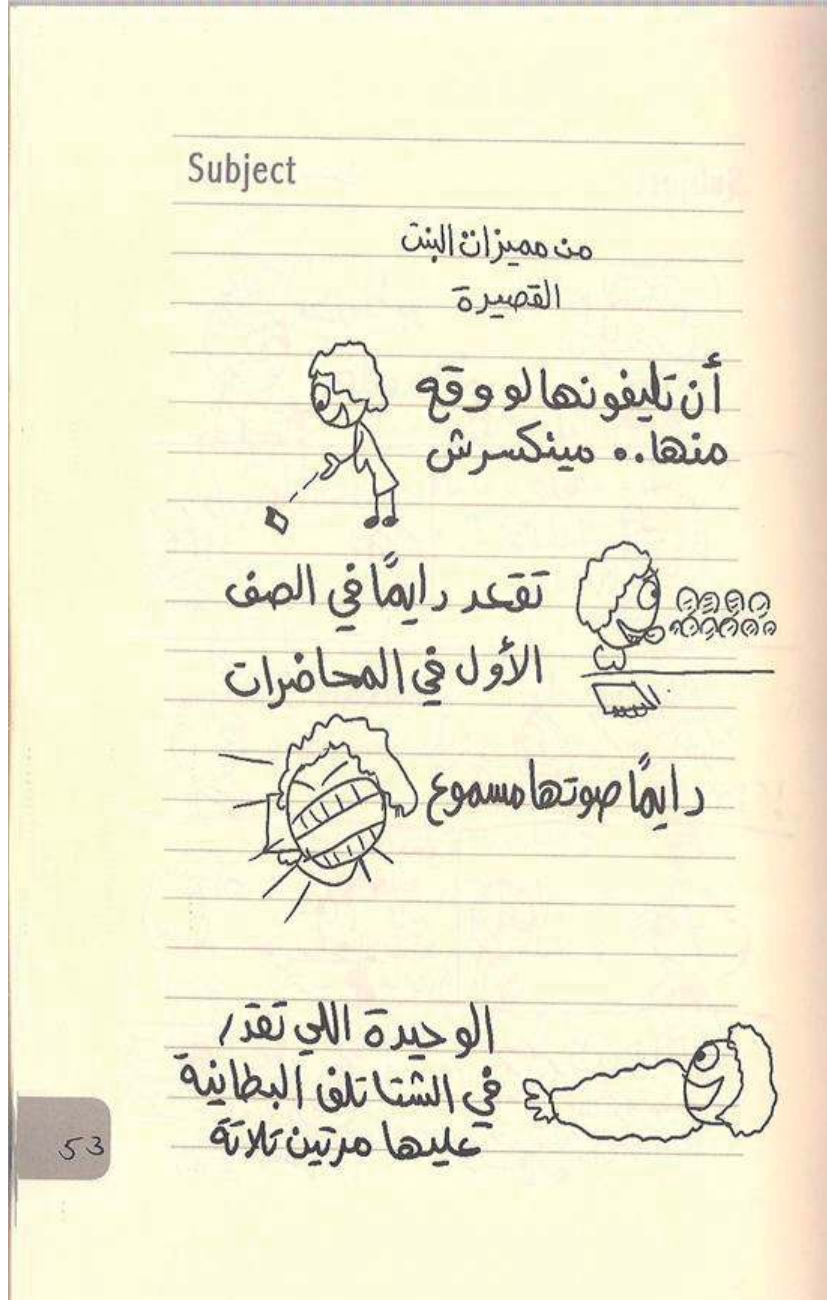 Subject
من مميزات البنت
القصيرة
أن تليفونها لو وقع
منها.. مينكسرش
تقعد دايمًا في الصف
الأول في المحاضرات
دايمًا صوتها مسموع
الوحيدة اللي تقدر
في الشتا تلف البطانية
عليها مرتين تلاتة
53